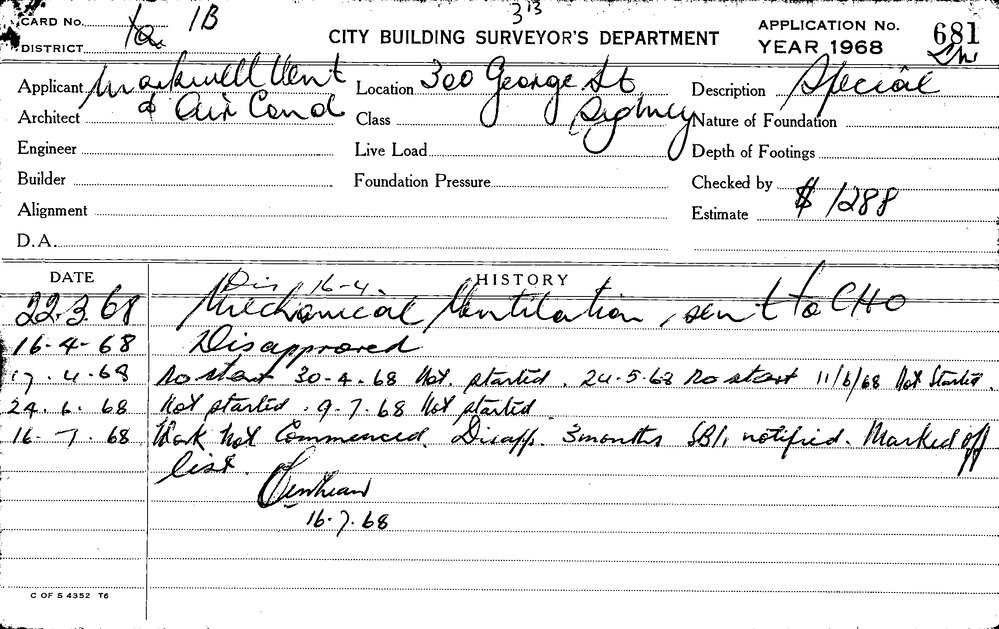 3¹³
CARD No. 1B
DISTRICT
CITY BUILDING SURVEYOR'S DEPARTMENT
APPLICATION No. 681
YEAR 1968
Applicant Markwell Vent
Location 300 George St
Description Special
Architect & Air Cond
Class Sydney
Nature of Foundation
Engineer
Live Load
Depth of Footings
Builder
Foundation Pressure
Checked by
Alignment
Estimate $1288
D.A.
DATE
HISTORY
Dis 16-4.
22.3.68 Mechanical Ventilation, sent to CHO
16-4-68 Disapproved
17.4.68 No start 30-4.68 Not started. 24-5.68 No start 11/6/68 Not Started.
24.6.68 Not started. 9-7.68 Not started
16-7.68 Work Not Commenced. Disapp. 3months SB1, notified. Marked off
list.
16.7.68
C OF S 4352 T6